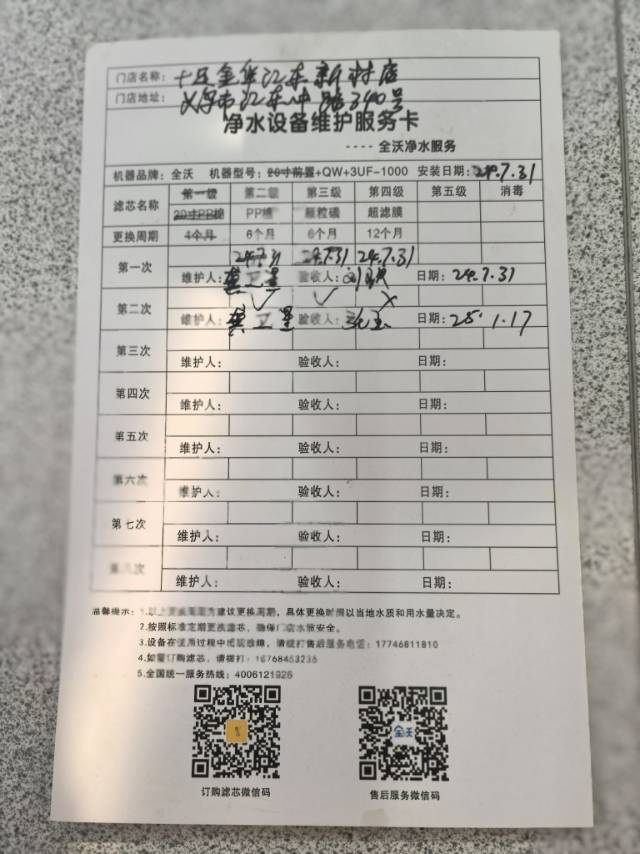 门店名称：十足金华江东新村店
门店地址：义乌市江东中路340号
净水设备维护服务卡
----全沃净水服务
机器品牌：全沃 机器型号：20寸前置+QW+3UF-1000 安装日期：24.7.31
滤芯名称 第一级 第二级 第三级 第四级 第五级 消毒
20寸PP棉 PP棉 颗粒碳 超滤膜
更换周期 4个月 6个月 6个月 12个月
第一次 24.7.31 24.7.31 24.7.31
维护人： 验收人： 日期：24.7.31
第二次 ✓ ✓ ×
维护人： 验收人： 日期：25.1.17
第三次
维护人： 验收人： 日期：
第四次
维护人： 验收人： 日期：
第五次
维护人： 验收人： 日期：
第六次
维护人： 验收人： 日期：
第七次
维护人： 验收人： 日期：
第八次
维护人： 验收人： 日期：
温馨提示：1.以上更换周期为建议更换周期，具体更换时间以当地水质和用水量决定。
2.按照标准定期更换滤芯，确保门店水质安全。
3.设备在使用过程中出现故障，请拨打售后服务电话：17746811810
4.如需订购滤芯，请拨打：
5.全国统一服务热线：4006121926
全沃
订购滤芯微信码
售后服务微信码